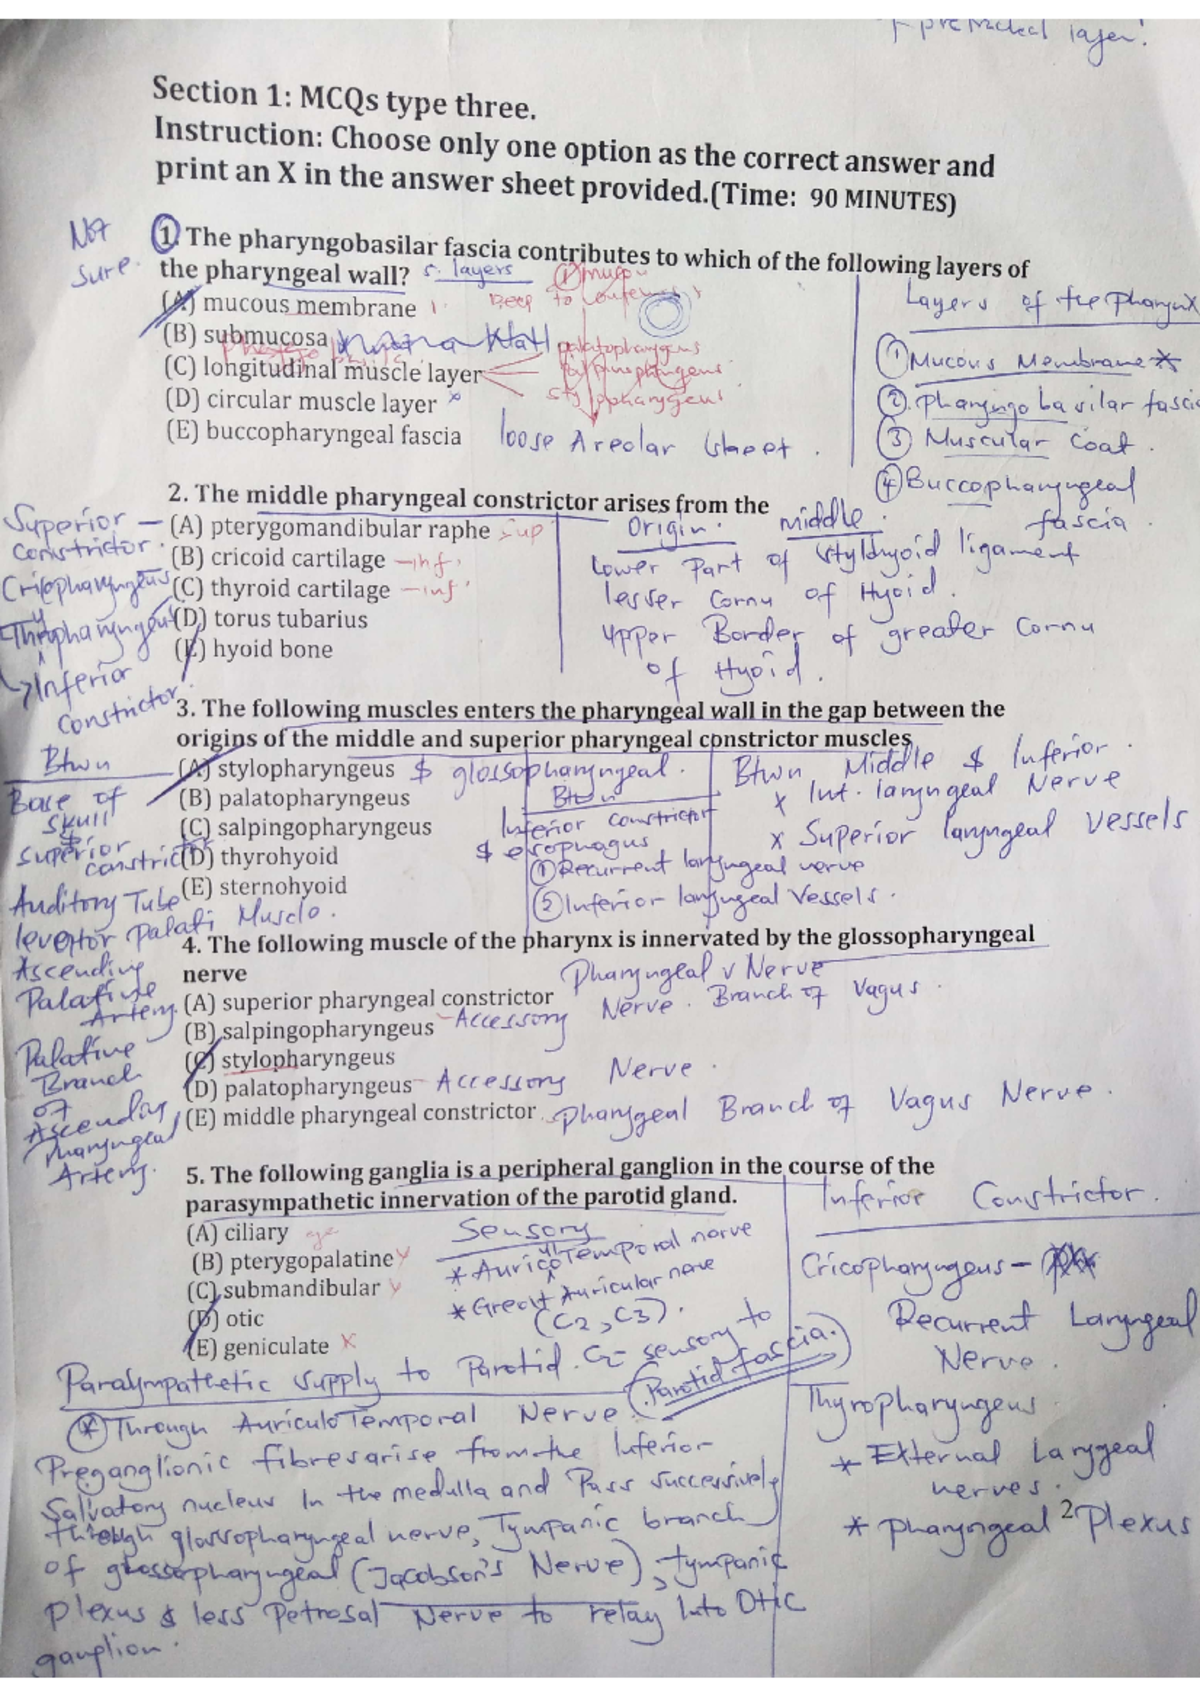 pretracheal layer!
Section 1: MCQs type three.
Instruction: Choose only one option as the correct answer and
print an X in the answer sheet provided.(Time: 90 MINUTES)
Not
sure.
1. The pharyngobasilar fascia contributes to which of the following layers of
the pharyngeal wall? 5. layers
(A) mucous membrane
(B) submucosa
(C) longitudinal muscle layer
palatopharyngeus
stylopharyngeus
(D) circular muscle layer x
(E) buccopharyngeal fascia loose Areolar sheet.
Layers of the pharynx
① Mucous Membrane *
② pharyngobasilar fascia
③ Muscular coat.
④ Buccopharyngeal
fascia.
2. The middle pharyngeal constrictor arises from the
(A) pterygomandibular raphe sup
(B) cricoid cartilage - inf
(C) thyroid cartilage - inf
(D) torus tubarius
(E) hyoid bone
Superior
constrictor.
Cricopharyngeus
Thyropharyngeus
→ Inferior
constrictor.
Origin. middle.
Lower part of styldhyoid ligament
lesser Cornu of Hyoid.
Upper Border of greater Cornu
of Hyoid.
3. The following muscles enters the pharyngeal wall in the gap between the
origins of the middle and superior pharyngeal constrictor muscles
(A) stylopharyngeus $ glossopharyngeal.
(B) palatopharyngeus
(C) salpingopharyngeus
(D) thyrohyoid
(E) sternohyoid
Btwn
Inferior constrictor
$ esophagus
① Recurrent laryngeal nerve
② Inferior laryngeal Vessels.
Btwn Middle $ Inferior.
x Int. laryngeal Nerve
x Superior laryngeal vessels
Btwn
Base of
skull
$
superior
constrictor
Auditory Tube
levator palati Muscle.
Ascending
Palatine
Artery.
Palatine
Branch
of
Ascending
Pharyngeal
Artery.
4. The following muscle of the pharynx is innervated by the glossopharyngeal
nerve
(A) superior pharyngeal constrictor
Pharyngeal v Nerve
Nerve. Branch of Vagus.
(B) salpingopharyngeus - Accessory
(C) stylopharyngeus
(D) palatopharyngeus - Accessory Nerve.
(E) middle pharyngeal constrictor. Pharygeal Branch of Vagus Nerve.
5. The following ganglia is a peripheral ganglion in the course of the
parasympathetic innervation of the parotid gland.
(A) ciliary
(B) pterygopalatine
(C) submandibular
(D) otic
(E) geniculate x
Sensory
* Auriculo Temporal nerve
* Great Auricular nerve
(C2, C3).
C2 - sensory to
(Parotid fascia.)
Parasympathetic supply to Parotid.
* Through AuriculoTemporal Nerve.
Preganglionic fibres arise from the Inferior
Salivatory nucleus In the medulla and Pass successively
through glossopharyngeal nerve, Tympanic branch
of glossopharyngeal (Jacobson's Nerve), tympanic
plexus & less Petrosal Nerve to relay Into Otic
ganglion.
Inferior Constrictor.
Cricopharyngeus -
Recurrent Laryngeal
Nerve.
Thyropharyngeus
* External Laryngeal
nerves.
* pharyngeal Plexus
2